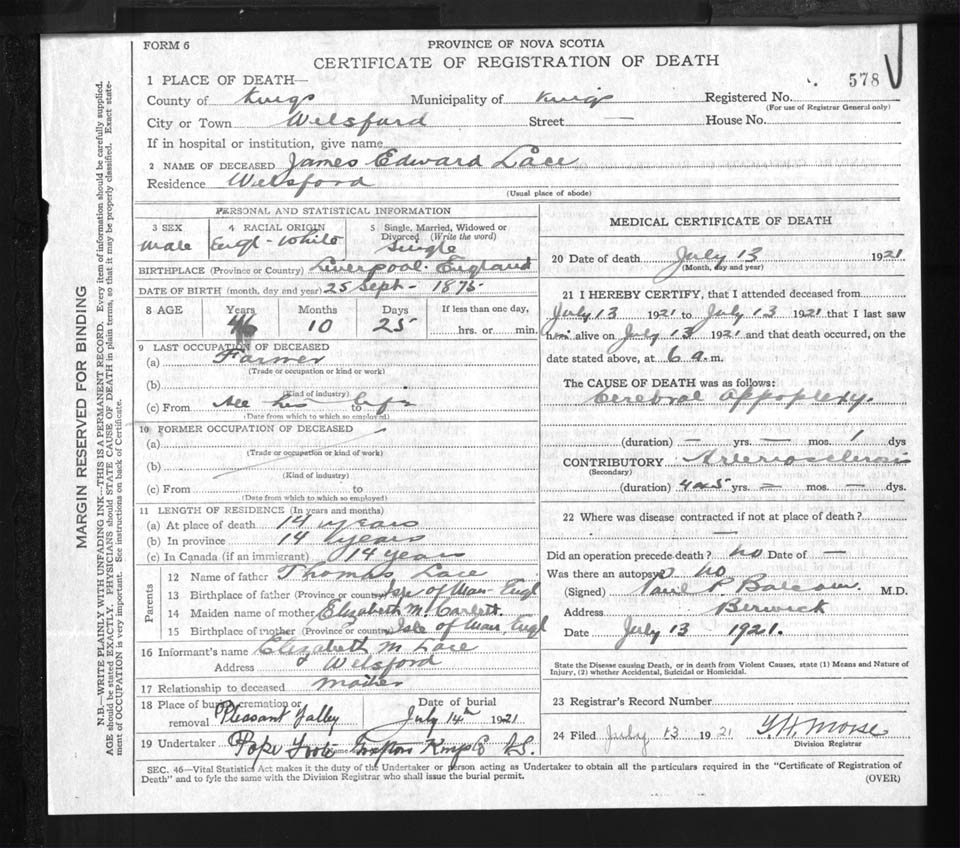 FORM 6
PROVINCE OF NOVA SCOTIA
CERTIFICATE OF REGISTRATION OF DEATH
1 PLACE OF DEATH—
578
County of Kings Municipality of Kings Registered No.
(For use of Registrar General only)
City or Town Welsford Street — House No.
If in hospital or institution, give name
2 NAME OF DECEASED James Edward Lace
Residence Welsford
(Usual place of abode)
PERSONAL AND STATISTICAL INFORMATION
3 SEX male
4 RACIAL ORIGIN Engl - White
5 Single, Married, Widowed or Divorced (Write the word) Single
BIRTHPLACE (Province or Country) Liverpool. England
DATE OF BIRTH (month, day and year) 25 Sept - 1875
8 AGE Years 46 Months 10 Days 25 If less than one day, hrs. or min.
9 LAST OCCUPATION OF DECEASED
(a) Farmer
(Trade or occupation or kind or work)
(b)
(Kind of industry)
(c) From All his to life
(Date from which to which so employed)
10 FORMER OCCUPATION OF DECEASED
(a)
(Trade or occupation or kind of work)
(b)
(Kind of industry)
(c) From to
(Date from which to which so employed)
11 LENGTH OF RESIDENCE (In years and months)
(a) At place of death 14 years
(b) In province 14 years
(c) In Canada (if an immigrant) 14 years
Parents
12 Name of father Thomas Lace
13 Birthplace of father (Province or country) Isle of Man Engl
14 Maiden name of mother Elizabeth M.
15 Birthplace of mother (Province or country) Isle of Man, Engl
16 Informant's name Elizabeth M Lace
Address Welsford
17 Relationship to deceased mother
18 Place of burial, cremation or removal Pleasant Valley Date of burial July 14 1921
19 Undertaker Pope Grafton Kings Co N.S.
MEDICAL CERTIFICATE OF DEATH
20 Date of death July 13 1921
(Month, day and year)
21 I HEREBY CERTIFY, that I attended deceased from
July 13 1921 to July 13 1921 that I last saw
him alive on July 13 1921 and that death occurred, on the
date stated above, at 6 a.m.
The CAUSE OF DEATH was as follows:
Cerebral Appoplexy.
(duration) — yrs. — mos. 1 dys
CONTRIBUTORY Arteriosclerosis
(Secondary)
(duration) 4 or 5 yrs. — mos. — dys.
22 Where was disease contracted if not at place of death?
—
Did an operation precede death? no Date of —
Was there an autopsy? no
(Signed) P. Balcom. M.D.
Address Berwick
Date July 13 1921.
State the Disease causing Death, or in death from Violent Causes, state (1) Means and Nature of
Injury, (2) whether Accidental, Suicidal or Homicidal.
23 Registrar's Record Number
24 Filed July 13 1921 Morse
Division Registrar
SEC. 46—Vital Statistics Act makes it the duty of the Undertaker or person acting as Undertaker to obtain all the particulars required in the "Certificate of Registration of
Death" and to fyle the same with the Division Registrar who shall issue the burial permit.
(OVER)
MARGIN RESERVED FOR BINDING
N.B.—WRITE PLAINLY WITH UNFADING INK—THIS IS A PERMANENT RECORD. Every item of information should be carefully supplied.
AGE should be stated EXACTLY. PHYSICIANS should STATE CAUSE OF DEATH in plain terms, so that it may be properly classified. Exact state-
ment of OCCUPATION is very important. See instructions on back of Certificate.